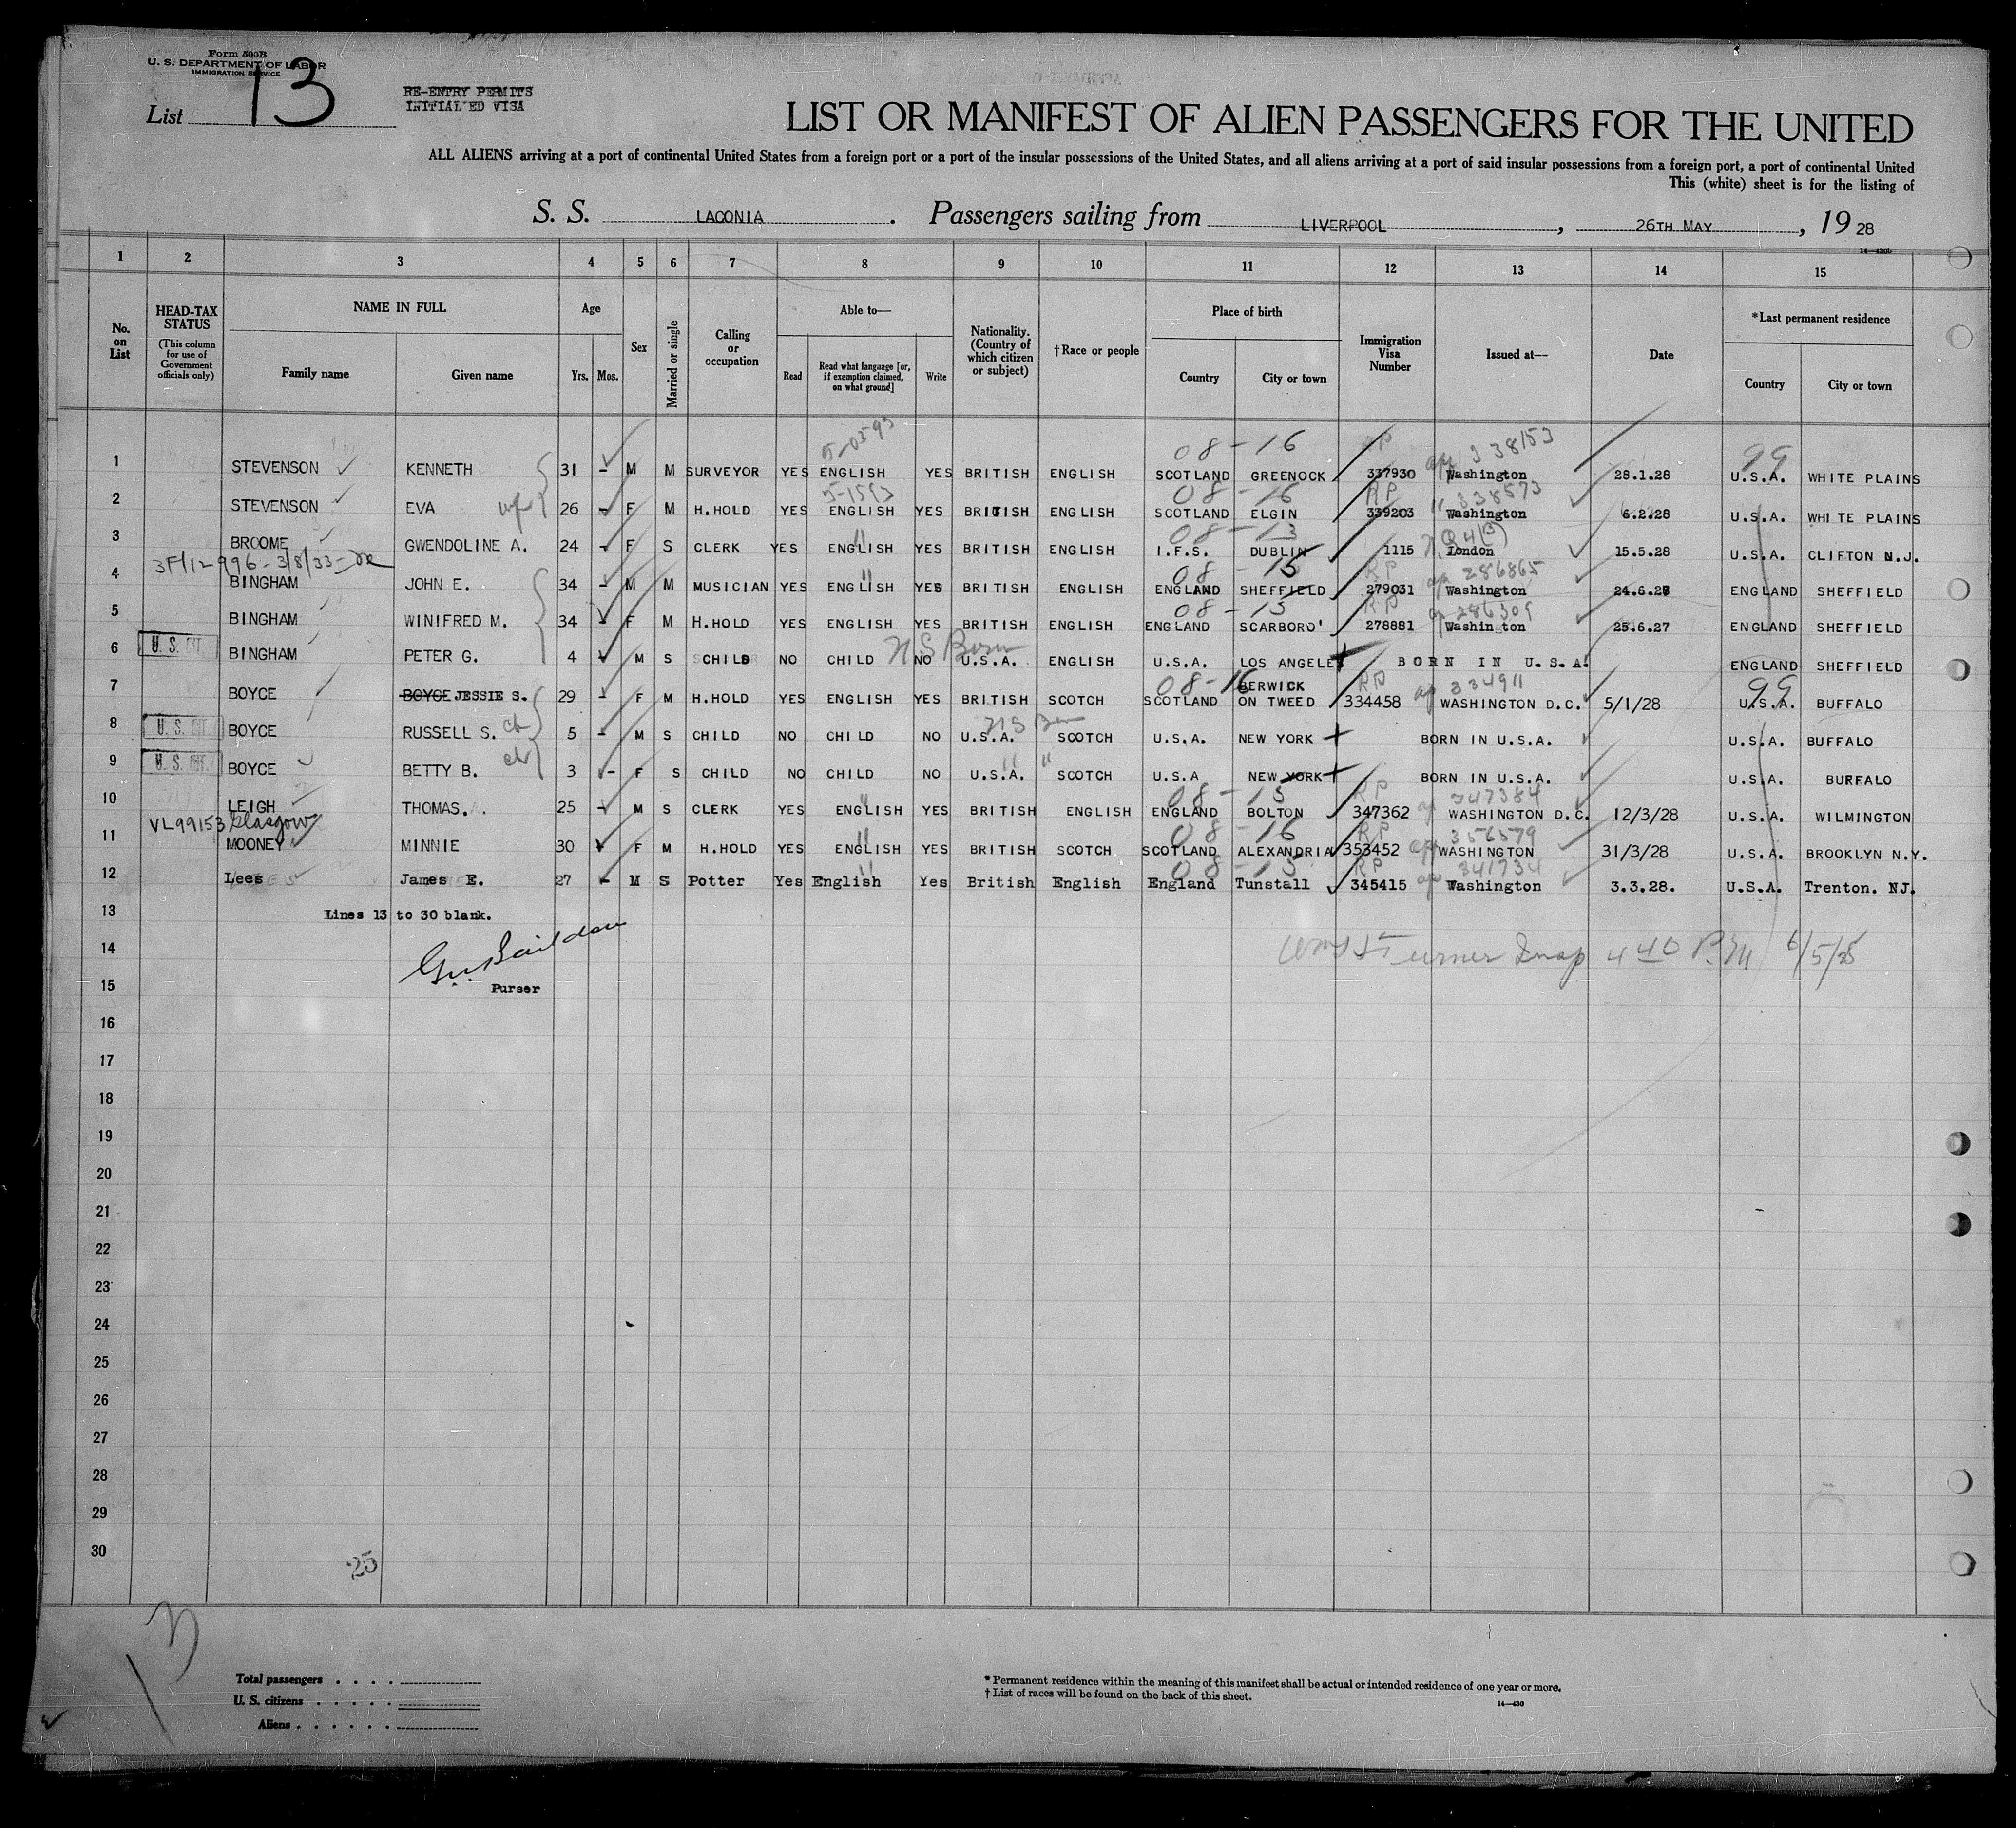 Form 500B
U. S. DEPARTMENT OF LABOR
IMMIGRATION SERVICE
List 13
RE-ENTRY PERMITS
INITIALED VISA
LIST OR MANIFEST OF ALIEN PASSENGERS FOR THE UNITED
ALL ALIENS arriving at a port of continental United States from a foreign port or a port of the insular possessions of the United States, and all aliens arriving at a port of said insular possessions from a foreign port, a port of continental United
This (white) sheet is for the listing of
S. S. LACONIA . Passengers sailing from LIVERPOOL , 26TH MAY , 19 28
14—430b
1 2 3 4 5 6 7 8 9 10 11 12 13 14 15
No. on List
HEAD-TAX STATUS (This column for use of Government officials only)
NAME IN FULL
Family name Given name
Age
Yrs. Mos.
Sex
Married or single
Calling or occupation
Able to—
Read Read what language [or, if exemption claimed, on what ground] Write
Nationality. (Country of which citizen or subject)
†Race or people
Place of birth
Country City or town
Immigration Visa Number
Issued at—
Date
*Last permanent residence
Country City or town
08-16 338153 99
1 STEVENSON KENNETH 31 – M M SURVEYOR YES ENGLISH YES BRITISH ENGLISH SCOTLAND GREENOCK 337930 Washington 28.1.28 U.S.A. WHITE PLAINS
08-16 RP 338573
2 STEVENSON EVA wf 26 – F M H.HOLD YES ENGLISH YES BRITISH ENGLISH SCOTLAND ELGIN 339203 Washington 6.2.28 U.S.A. WHITE PLAINS
08-13
3 BROOME GWENDOLINE A. 24 – F S CLERK YES ENGLISH YES BRITISH ENGLISH I.F.S. DUBLIN 1115 London 15.5.28 U.S.A. CLIFTON N.J.
08-15 RP 286865
4 BINGHAM JOHN E. 34 – M M MUSICIAN YES ENGLISH YES BRITISH ENGLISH ENGLAND SHEFFIELD 279031 Washington 24.6.28 ENGLAND SHEFFIELD
08-15 RP 286309
5 BINGHAM WINIFRED M. 34 – F M H.HOLD YES ENGLISH YES BRITISH ENGLISH ENGLAND SCARBORO' 278881 Washin ton 25.6.27 ENGLAND SHEFFIELD
U.S. CIT. U S Born
6 BINGHAM PETER G. 4 – M S CHILD NO CHILD NO U.S.A. ENGLISH U.S.A. LOS ANGELES BORN IN U.S.A. ENGLAND SHEFFIELD
08-16 RP 334911 99
7 BOYCE BOYCE JESSIE S. 29 – F M H.HOLD YES ENGLISH YES BRITISH SCOTCH SCOTLAND BERWICK ON TWEED 334458 WASHINGTON D.C. 5/1/28 U.S.A. BUFFALO
U.S. CIT.
8 BOYCE RUSSELL S. ch 5 – M S CHILD NO CHILD NO U.S.A. SCOTCH U.S.A. NEW YORK BORN IN U.S.A. U.S.A. BUFFALO
U.S. CIT.
9 BOYCE BETTY B. ch 3 – F S CHILD NO CHILD NO U.S.A. SCOTCH U.S.A NEW YORK BORN IN U.S.A. U.S.A. BURFALO
08-15 RP 347384
10 LEIGH THOMAS. 25 – M S CLERK YES ENGLISH YES BRITISH ENGLISH ENGLAND BOLTON 347362 WASHINGTON D.C. 12/3/28 U.S.A. WILMINGTON
VL99153 Glasgow 08-16 RP 356579
11 MOONEY MINNIE 30 F M H.HOLD YES ENGLISH YES BRITISH SCOTCH SCOTLAND ALEXANDRIA 353452 WASHINGTON 31/3/28 U.S.A. BROOKLYN N.Y.
08-15 RP 341734
12 Lees James E. 27 – M S Potter Yes English Yes British English England Tunstall 345415 Washington 3.3.28. U.S.A. Trenton. NJ.
13 Lines 13 to 30 blank.
14 Turner Insp 4 40 P.M 6/5/28
15 Purser
16
17
18
19
20
21
22
23
24
25
26
27
28
29
30
25
13
Total passengers
U. S. citizens
Aliens
* Permanent residence within the meaning of this manifest shall be actual or intended residence of one year or more.
† List of races will be found on the back of this sheet.
14—430